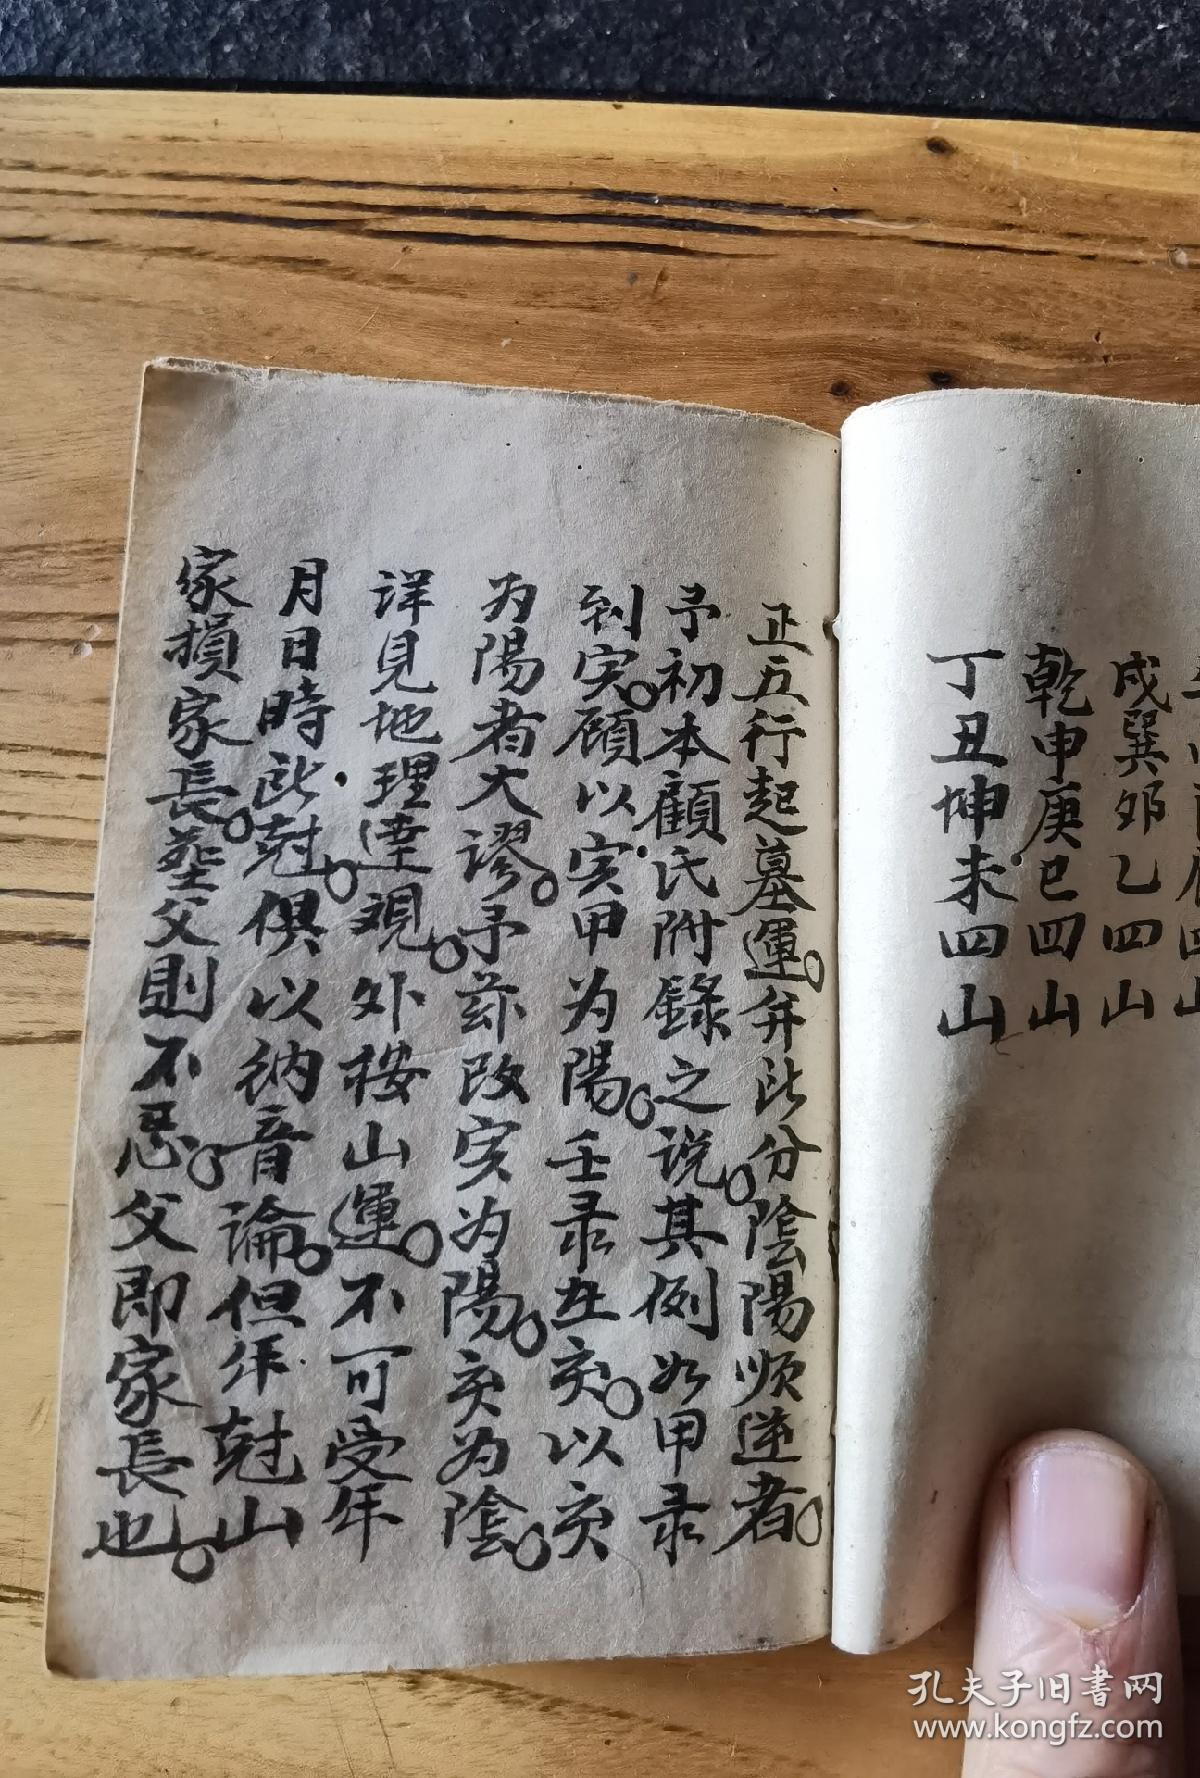 戌巽卯乙四山
乾申庚巳四山
丁丑坤未四山
正五行起墓運。并此分陰陽順逆者。
予初本顧氏附錄之说。其例如甲录
到寅。顧以寅甲为陽。壬录在亥。以亥
为陽者大謬。予茲改寅为陽。亥为陰。
详見地理達觀。外按山運。不可受年
月日時此尅。俱以納音論。但年尅山
家損家長。塟父則不忌。父即家長也。
孔夫子旧書网
www.kongfz.com